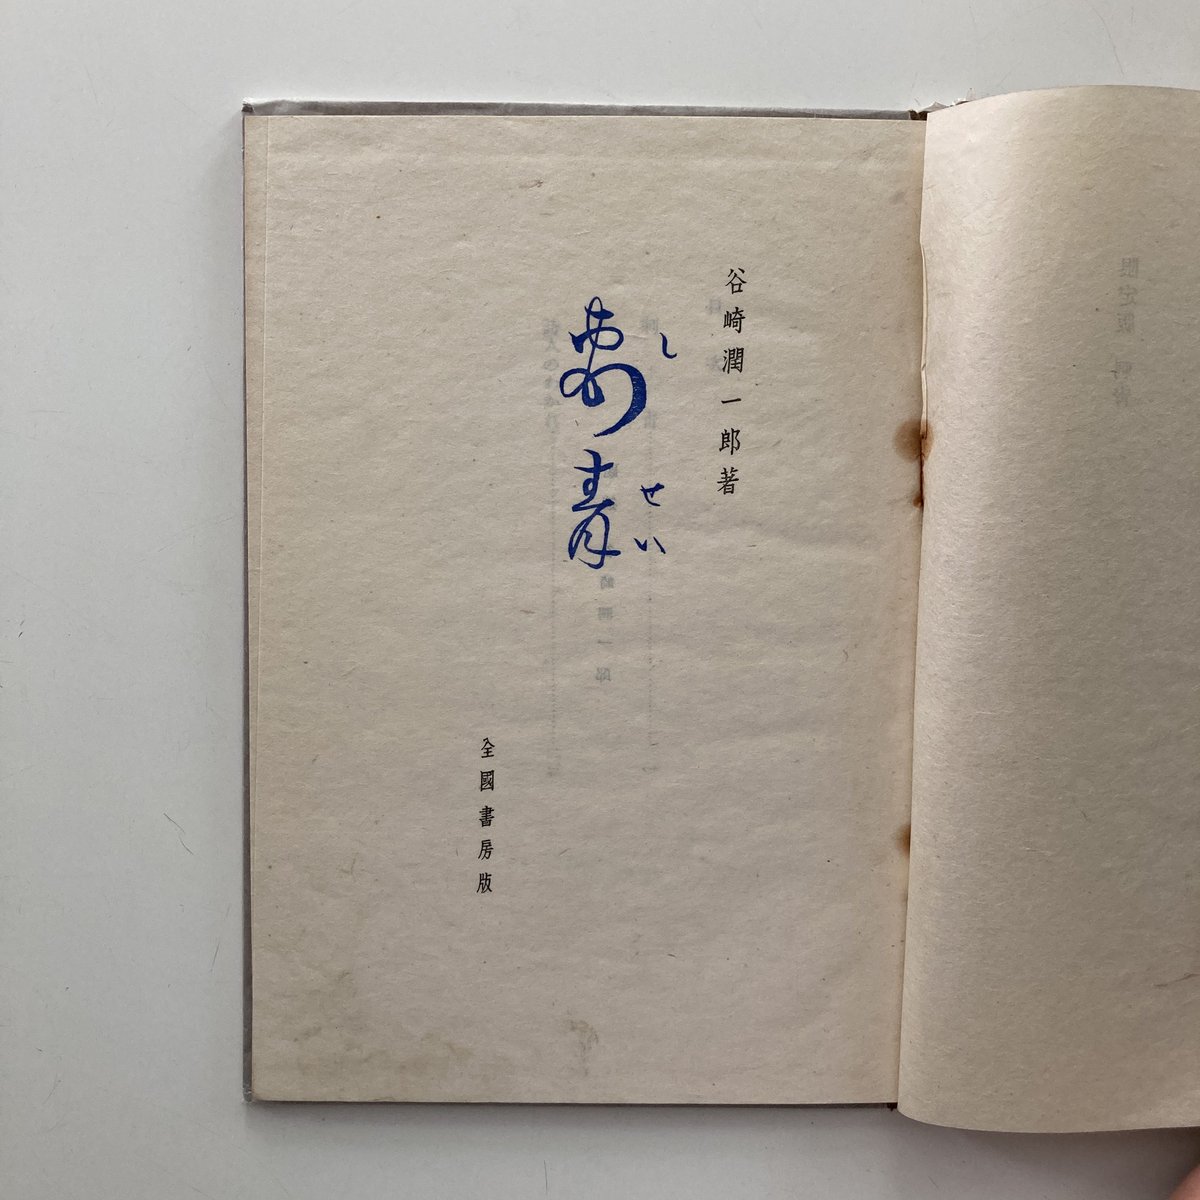 谷崎潤一郎著
刺青
しせい
全國書房版